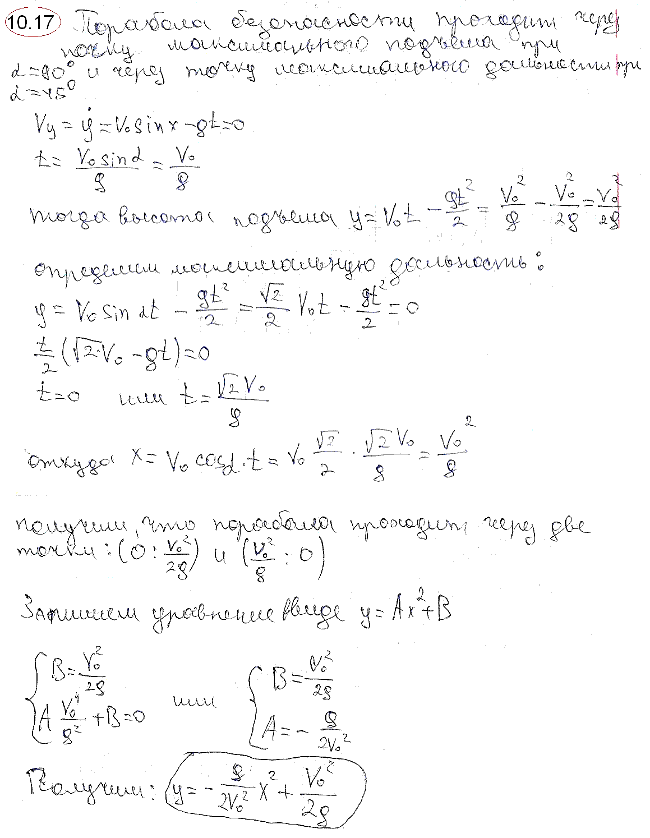 10.17 Парабола безопасности проходит через
точку максимального подъема при
α=90° и через точку максимального дальности при
α=45°
Vy = ẏ = V₀ sin x - gt = 0
t = V₀ sin α / g = V₀ / g
тогда высота подъема y = V₀t - gt²/2 = V₀²/g - V₀²/2g = V₀²/2g
определим максимальную дальность:
y = V₀ sin αt - gt²/2 = √2/2 V₀t - gt²/2 = 0
t/2 (√2·V₀ - gt) = 0
t=0 или t = √2 V₀ / g
откуда x = V₀ cosα·t = V₀ √2/2 · √2 V₀/g = V₀²/g
получили, что парабола проходит через две
точки: (0 : V₀²/2g) и (V₀²/g : 0)
Запишем уравнение ввиде y = Ax² + B
{ B = V₀²/2g или { B = V₀²/2g
A V₀⁴/g² + B = 0 A = - g/2V₀²
Получим: y = - g/2V₀² x² + V₀²/2g